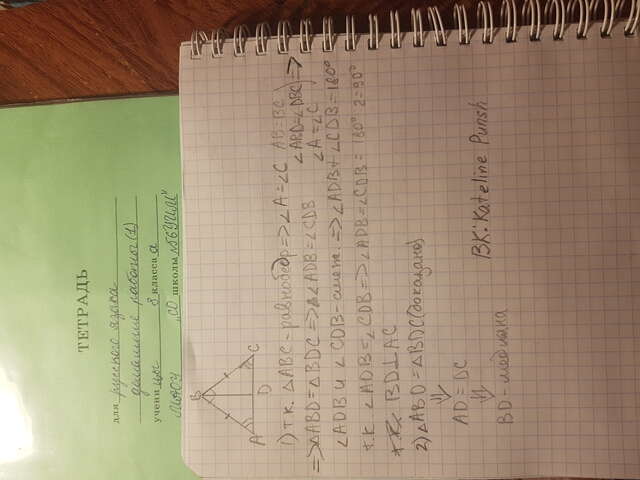 ТЕТРАДЬ
для русского языка
домашние работы (1)
учени цы 8 класса а
школы
B
A D C
1) т.к. △ABC - равнобедр => ∠A = ∠C AB = BC
∠ABD = ∠DBC =>
∠A = ∠C
=> △ABD = △BDC => ∠ADB = ∠CDB
∠ADB и ∠CDB - смеж. => ∠ADB + ∠CDB = 180°
т.к ∠ADB = ∠CDB => ∠ADB = ∠CDB = 180° : 2 = 90°
BD ⊥ AC
2) △ABD = △BDC (доказано)
⇓
AD = DC
⇓
BD - медиана
ВК: Kateline Punsh